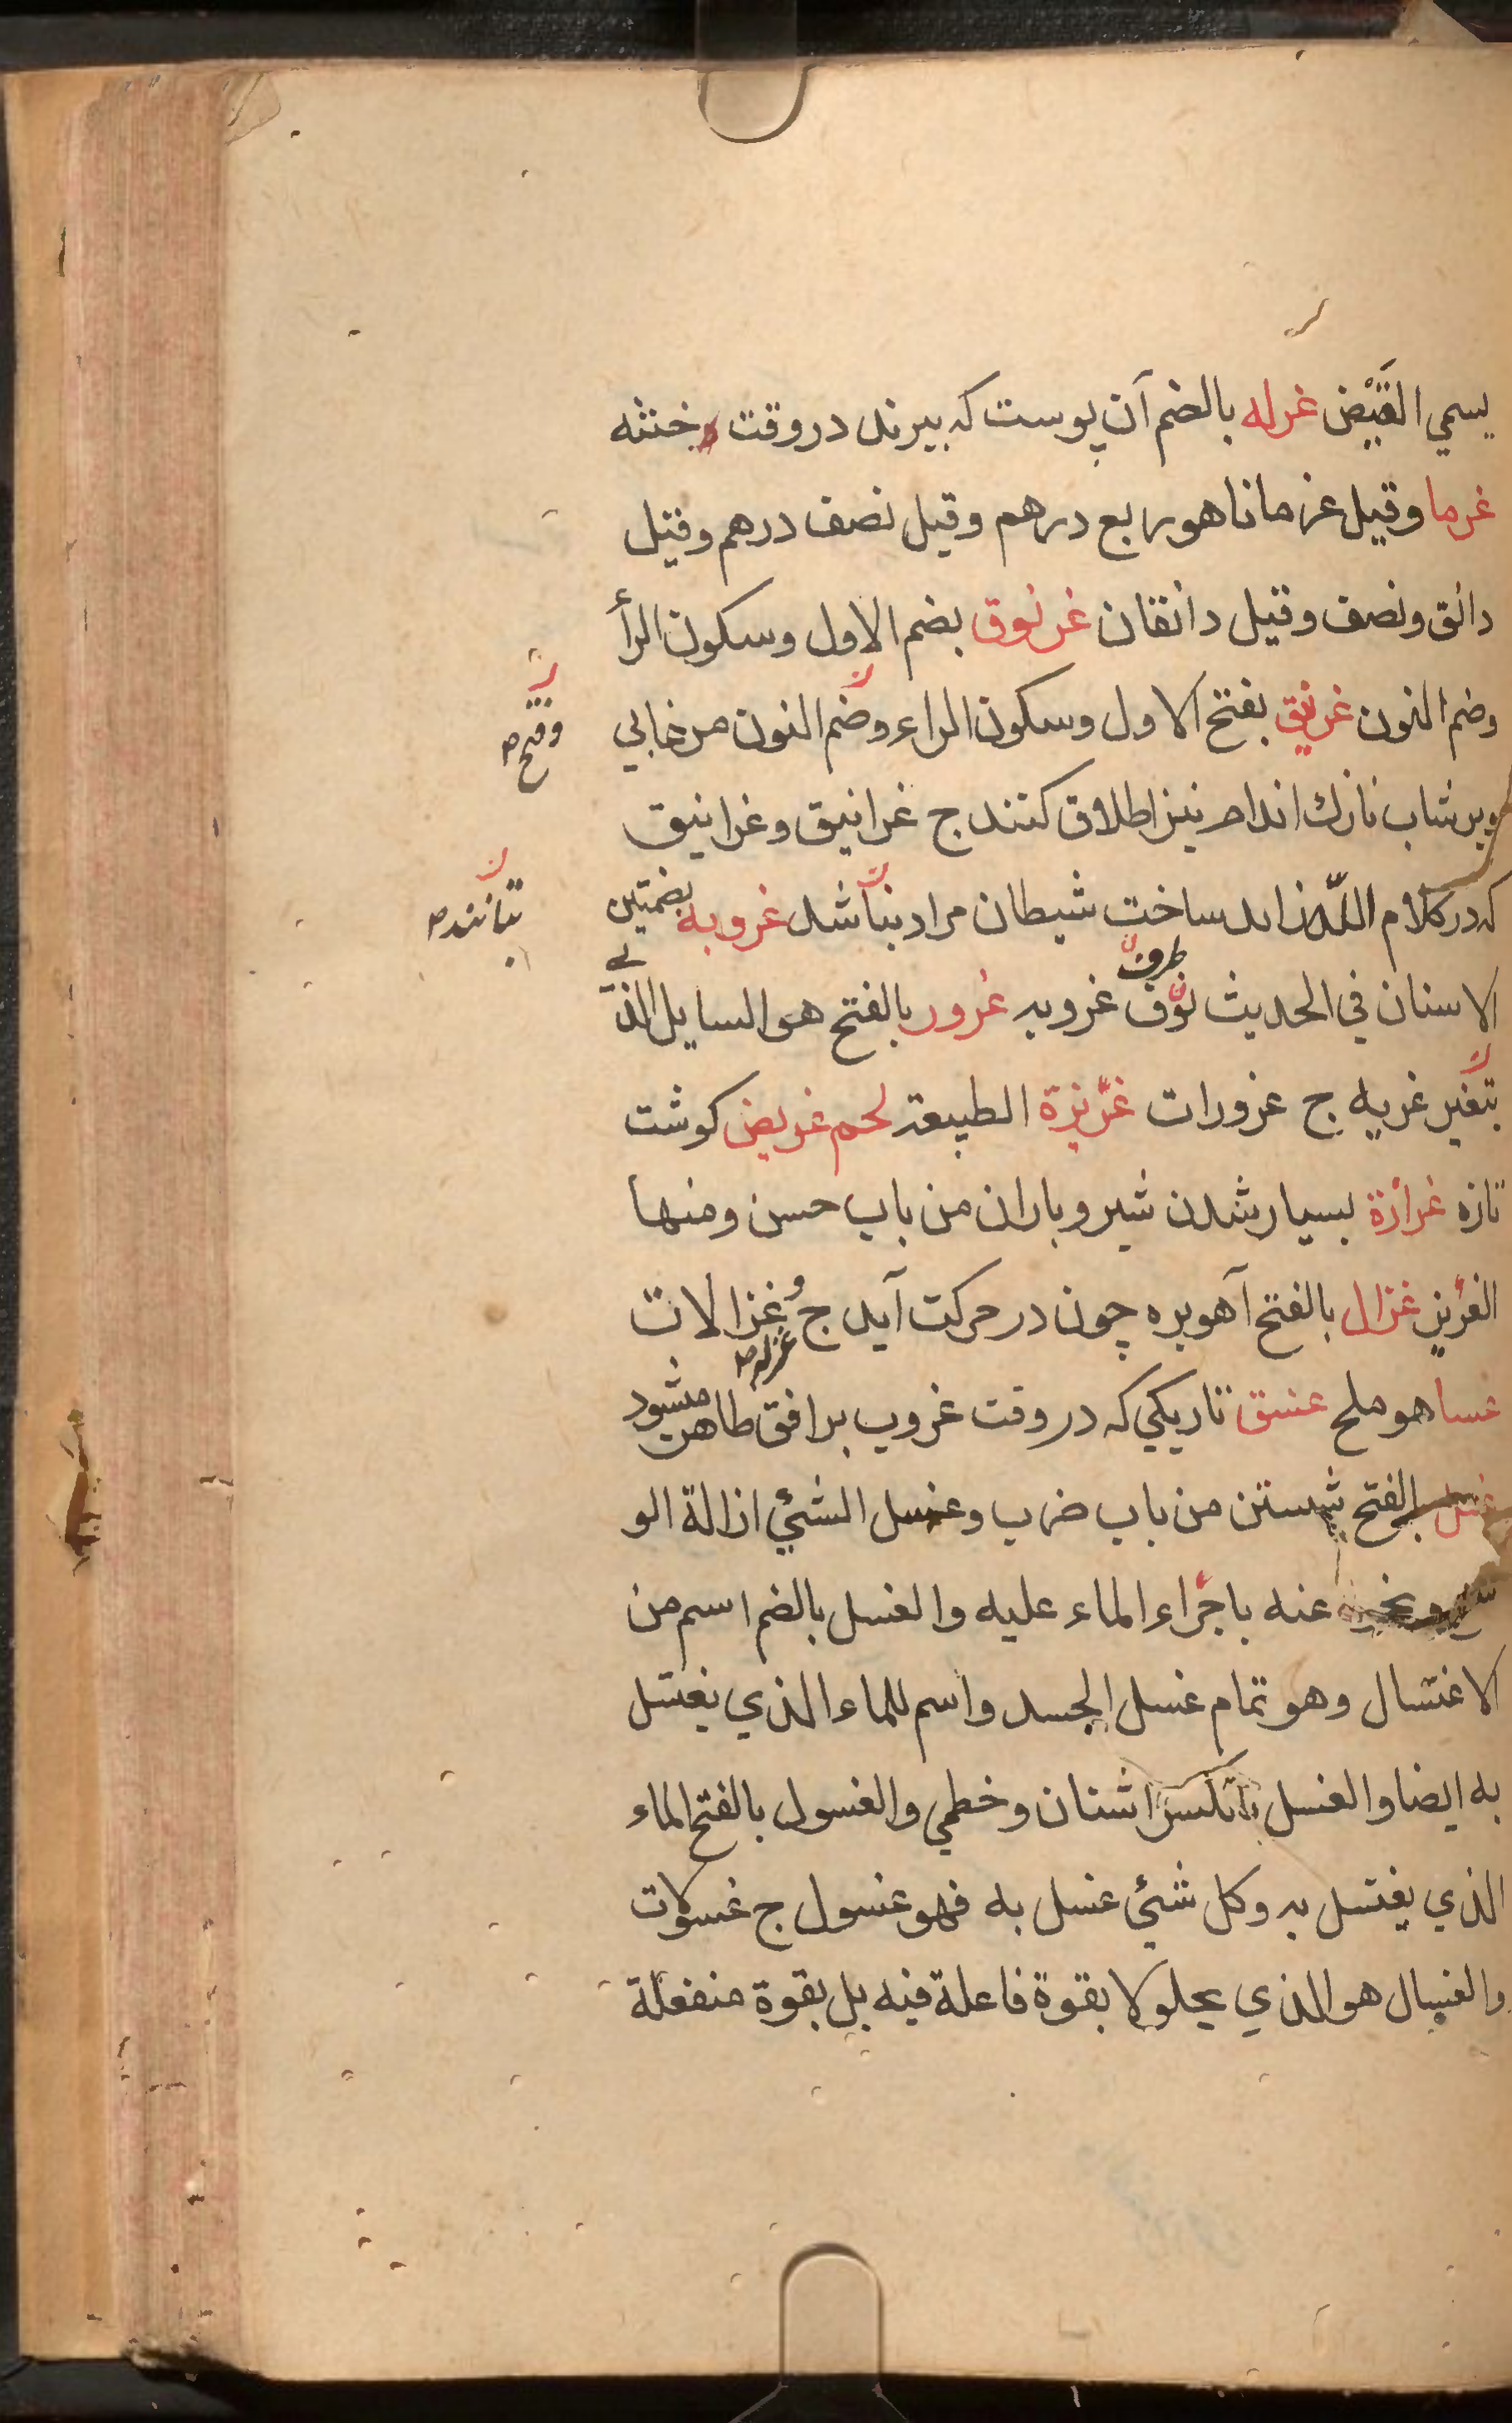 يسمي القَيْض غرله بالضم آن پوست كه ببرند در وقت ختنه
غرما وقيل غرمانا هو ربع درهم وقيل نصف درهم وقيل
دانق ونصف وقيل دانقان غرنوق بضم الاول وسكون الرأ
وضم النون غرنيق بفتح الاول وسكون الراء وضم النون مرغابي
وفتح
وبر شاب نازك اندام نيز اطلاق كنند ج غرانيق وغرانيق
كه در كلام اللّه زايد ساخت شيطان مراد بتا شد غروبه بضمتين
بتانند
الاسنان في الحديث ترف غروبه غرور بالفتح هو السايل الذي
يتغير غر به ج غرورات غريزة الطبيعة لحم غريض كوشت
تازه غزازة بسيار شدن شير وباران من باب حسن ومنها
الغزيز غزال بالفتح آهو بره چون در حركت آيد ج و غزالات
غزله
غسا هو ملح غسق تاريكي كه در وقت غروب بر افق طاهر ميشود
غسل بالفتح شستن من باب ضرب وغسل الشئي ازالة الو
سخ ونحوه عنه باجراء الماء عليه والغسل بالضم اسم من
الاغتسال وهو تمام غسل الجسد واسم للماء الذي يغتسل
به ايضا والغسل بالكسر اشنان وخطمي والغسول بالفتح الماء
الذي يغتسل به وكل شئي غسل به فهو غسول ج غسولات
والغسال هو الذي يجلو لا بقوة فاعلة فيه بل بقوة منفعلة